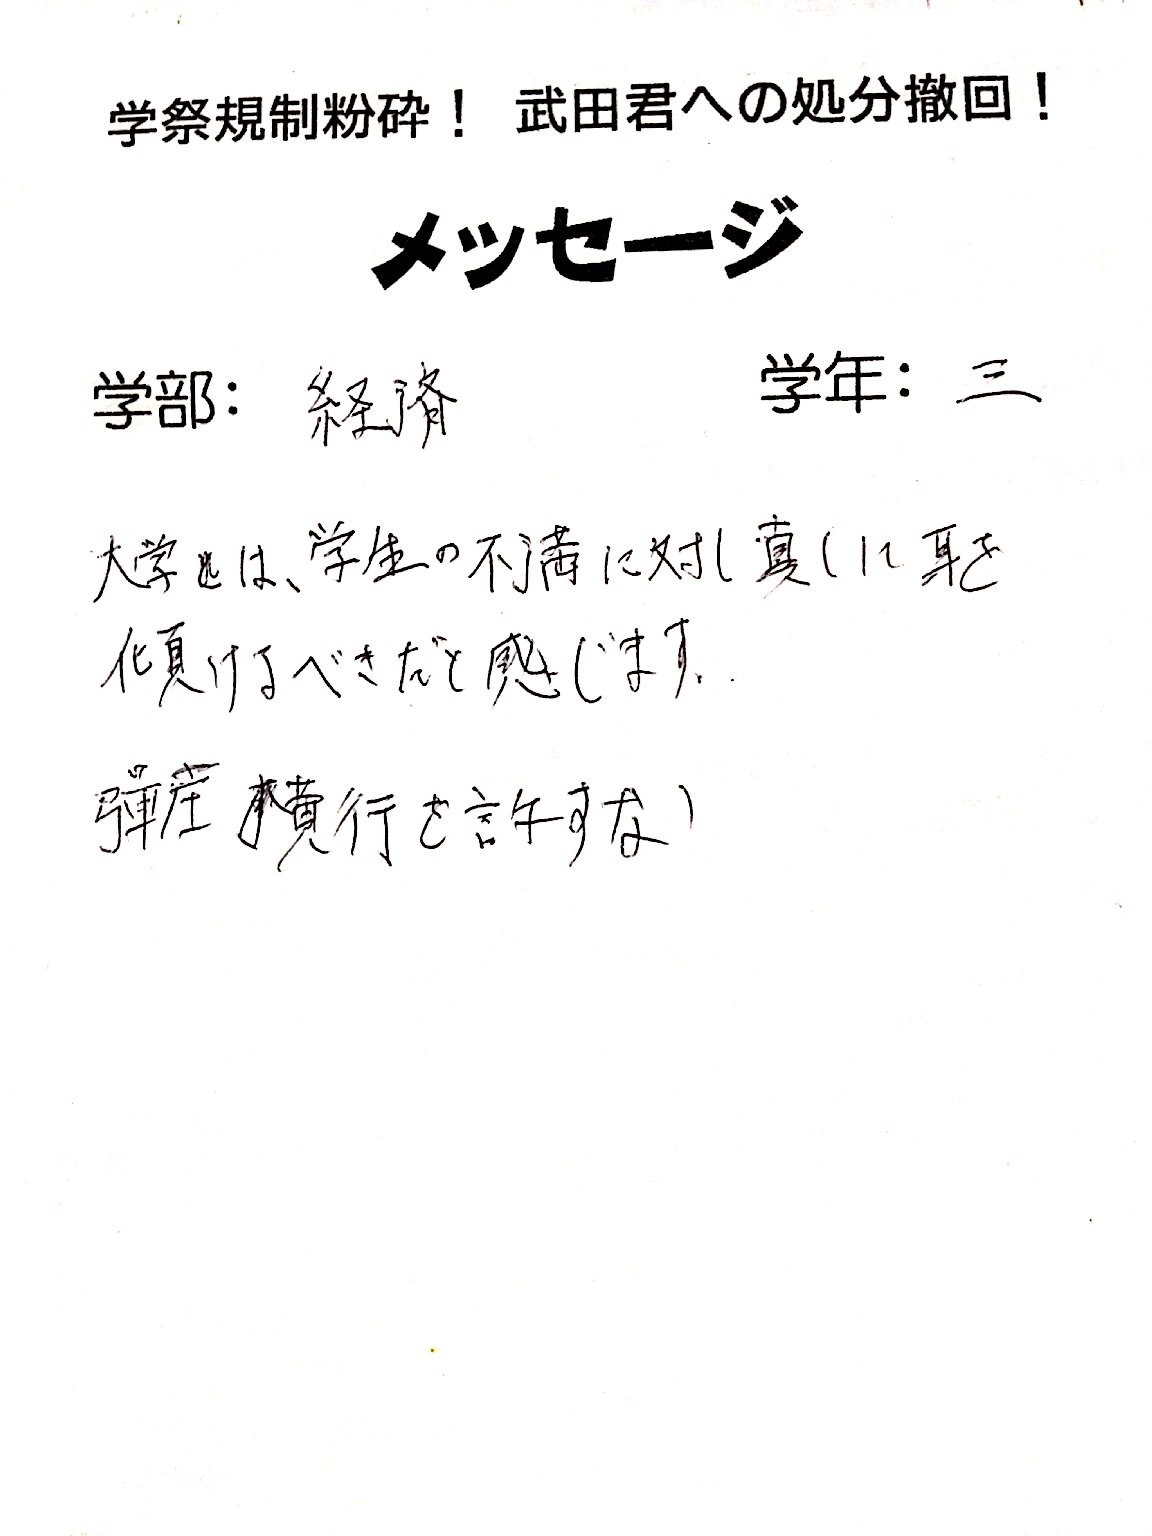 学祭規制粉砕！ 武田君への処分撤回！
メッセージ
学部： 経済 学年： 三
大学は、学生の不満に対し真しに耳を
傾けるべきだと感じます。
弾圧 横行を許すな！